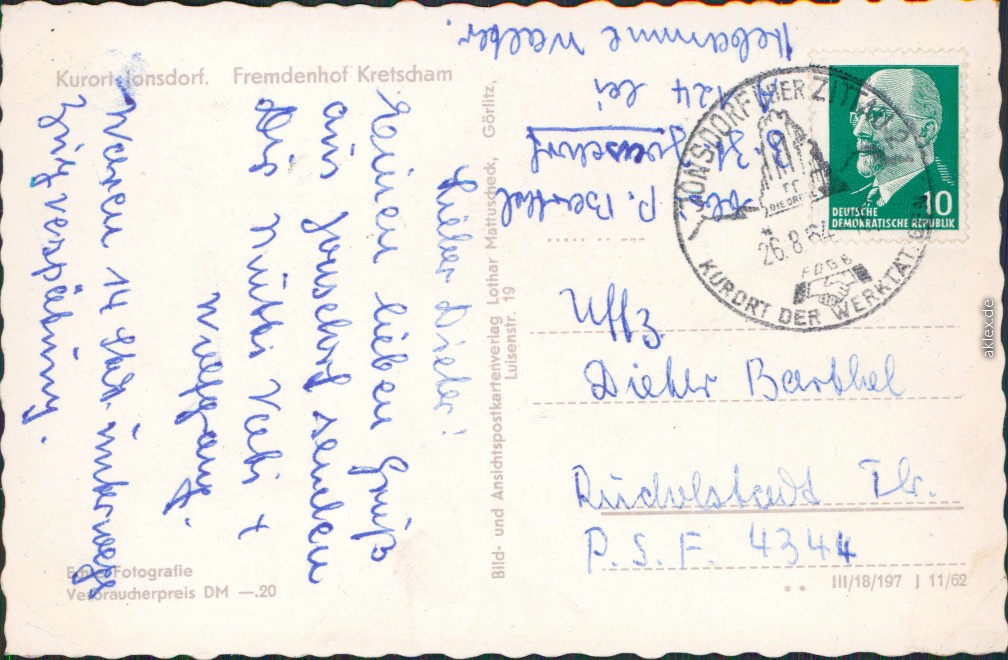 Kurort Jonsdorf. Fremdenhof Kretscham
Lieber Dieter!
Einen lieben Gruß
aus Jonsdorf senden
Dir Mutti Vati +
Wolfgang.
Waren 14 Std. unterwegs
Zugverspätung.
Echte Fotografie
Verbraucherpreis DM —.20
Bild- und Ansichtspostkartenverlag Lothar Mattuscheck, Görlitz,
Luisenstr. 19
Abs. P. Barthel
z. Zt. Jonsdorf
124 bei
Hebamme Walter.
JONSDORF ÜBER ZITTAU
DIE DREI
26.8.64
FDGB
KURORT DER WERKTÄTIGEN
10
DEUTSCHE
DEMOKRATISCHE REPUBLIK
Uffz
Dieter Barthel
Rudolstadt Thr.
P.S.F. 4344
III/18/197 J 11/62
aklex.de